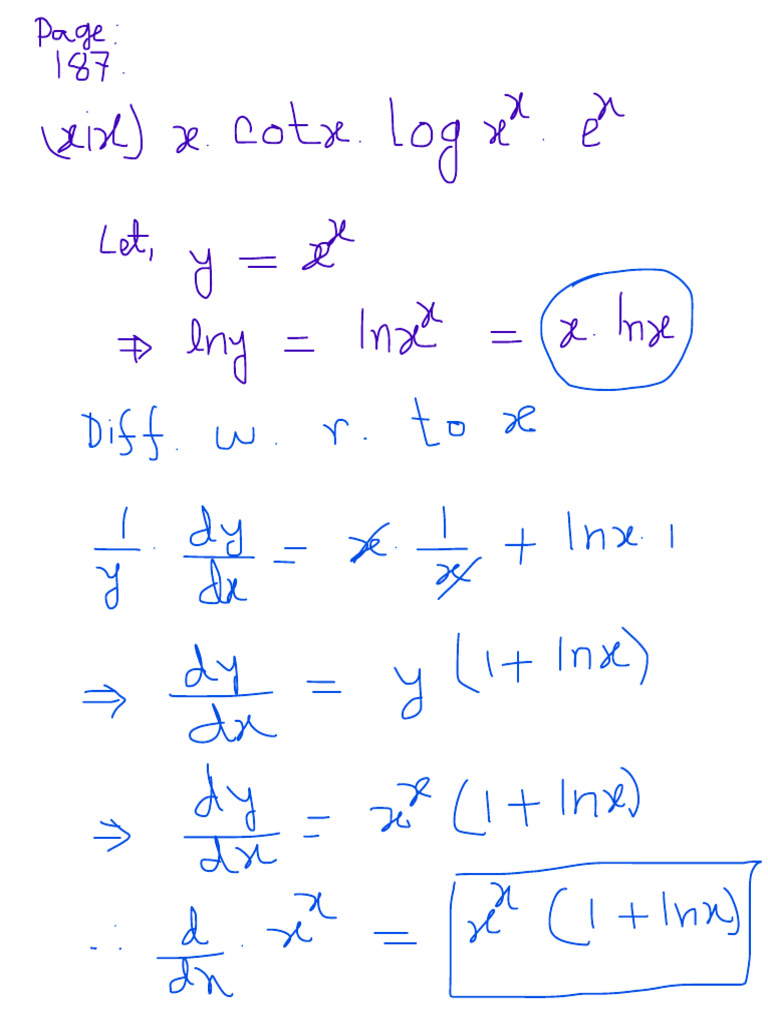 Page:
187.
(xix) x. cotx. log x^x. e^x
Let, y = x^x
⇒ lny = lnx^x = x. lnx
Diff. w. r. to x
1/y . dy/dx = x. 1/x + lnx. 1
⇒ dy/dx = y (1 + lnx)
⇒ dy/dx = x^x (1 + lnx)
∴ d/dx . x^x = x^x (1 + lnx)